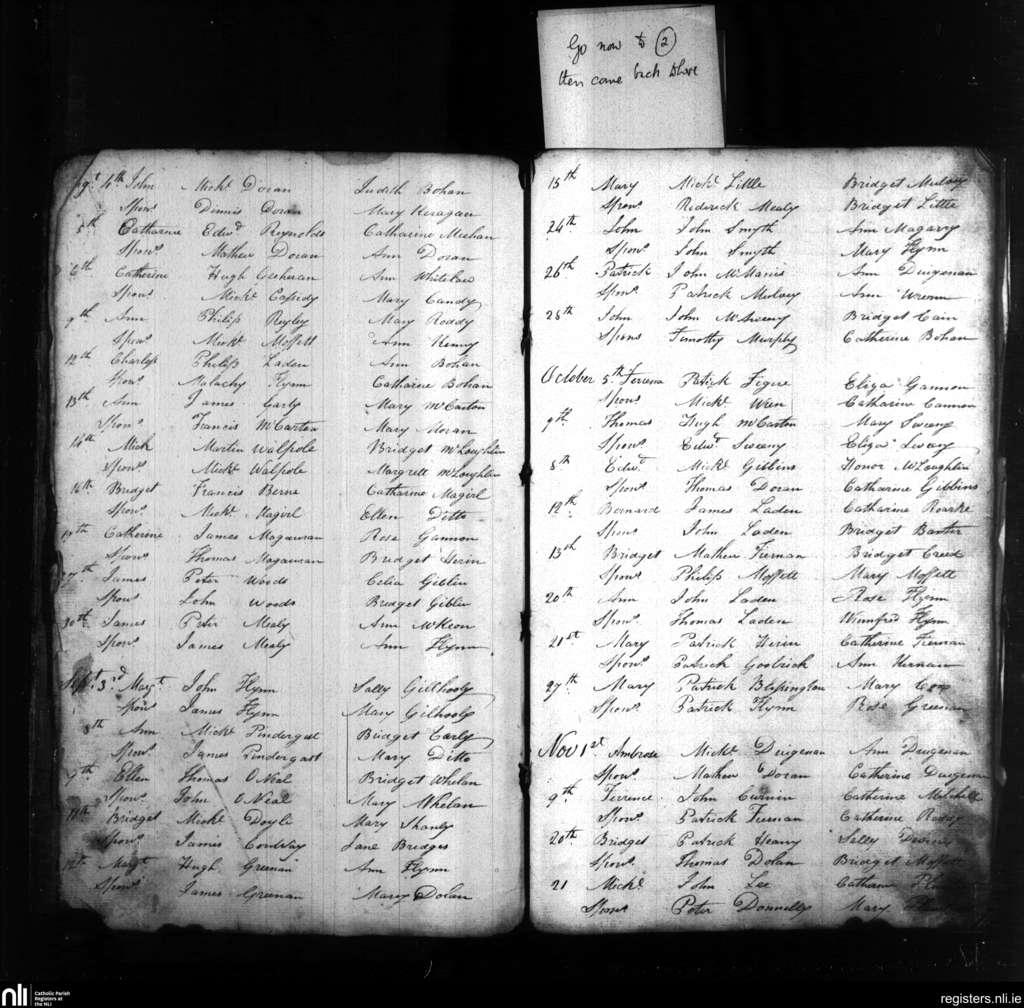 Go now to 2
then come back here
4th John Mick.l Doran Judith Bohan
Spon.s Dinnis Doran Mary Keragan
5th Catharine Edw.d Reynolds Catharine Meehan
Spon.s Mathew Doran Ann Doran
6th Catherine Hugh Ann Whitelaw
Spon.s Mick.l Cassidy Mary Candy
9th Ann Philip Rayley Mary Roddy
Spon.s Mick.l Moffett Ann Kenny
12th Charles Philip Laden Ann Bohan
Spon.s Malachy Flynn Catharine Bohan
13th Ann James Early Mary McCarton
Spon.s Francis McCarton Mary Moran
14th Mick Martin Walpole Bridget McLoughlin
Spon.s Mick.l Walpole Margrett McLoughlin
16th Bridget Francis Berne Catharine Magirl
Spon.s Mick.l Magirl Ellen Ditto
19th Catherine James Magauran Rose Gannon
Spon.s Thomas Magauran Bridget Herin
27th James Peter Woods Celia Giblin
Spon.s John Woods Bridget Giblin
30th James Peter Mealy Ann McKeon
Spon.s James Mealy Ann Flynn
Sept 3rd Marg.t John Flynn Sally Gillhooly
Spon.s James Flynn Mary Gilhooly
8th Ann Mick.l Pindergast Bridget Early
Spon.s James Pindergast Mary Ditto
9th Ellen Thomas O Neal Bridget Whelan
Spon.s John O Neal Mary Whelan
Bridget Mick.l Doyle Mary Shanly
Spon.s James Conway Jane Bridges
Marg.t Hugh Greenan Ann Flynn
Spon.s James Greenan Mary Dolan
15th Mary Mick.l Little Bridget Mulvey
Spon.s Roderick Mealy Bridget Little
24th John John Smyth Ann Magarry
Spon.s John Smyth Mary Flynn
26th Patrick John McManis Ann Duigenan
Spon.s Patrick Mulvey Ann Wrenn
28th John John McSweeny Bridget Cain
Spons Timothy Murphy Catherine Bohan
October 5th Ferrena Patrick Figue Eliza Gannon
Spon.s Mick.l Wren Catharine Cannon
9th Thomas Hugh McCarton Mary Sweeny
Spon.s Edw.d Sweeny Eliza
8th Edw.d Mick.l Gibbins Honor McLoughlin
Spon.s Thomas Doran Catharine Gibbins
12th Bernard James Laden Catharine Roarke
Spons John Laden Bridget Banter
13th Bridget Mathew Fiernan Bridget Creed
Spon.s Philip Moffett Mary Moffett
20th Ann John Laden Rose Flynn
Spon.s Thomas Laden Winnifred Flynn
21st Mary Patrick Herin Catherine Fiernan
Spon.s Patrick Goolrick Ann Kernan
27th Mary Patrick Blessington Mary Cox
Spon.s Patrick Flynn Rose Greenan
Nov 1st Ambrose Mick.l Duigenan Ann Duigenan
Spon.s Mathew Doran Catherine Duigenan
9th Terrence John Curnin Catherine Mitchell
Spon.s Patrick Fiernan Catherine Roddy
20th Bridget Patrick Heany Sally
Spon.s Thomas Dolan Bridget
21 Mick.l John Lee Catharine
Spons Peter Donnelly Mary
nli Catholic Parish Registers at the NLI
registers.nli.ie